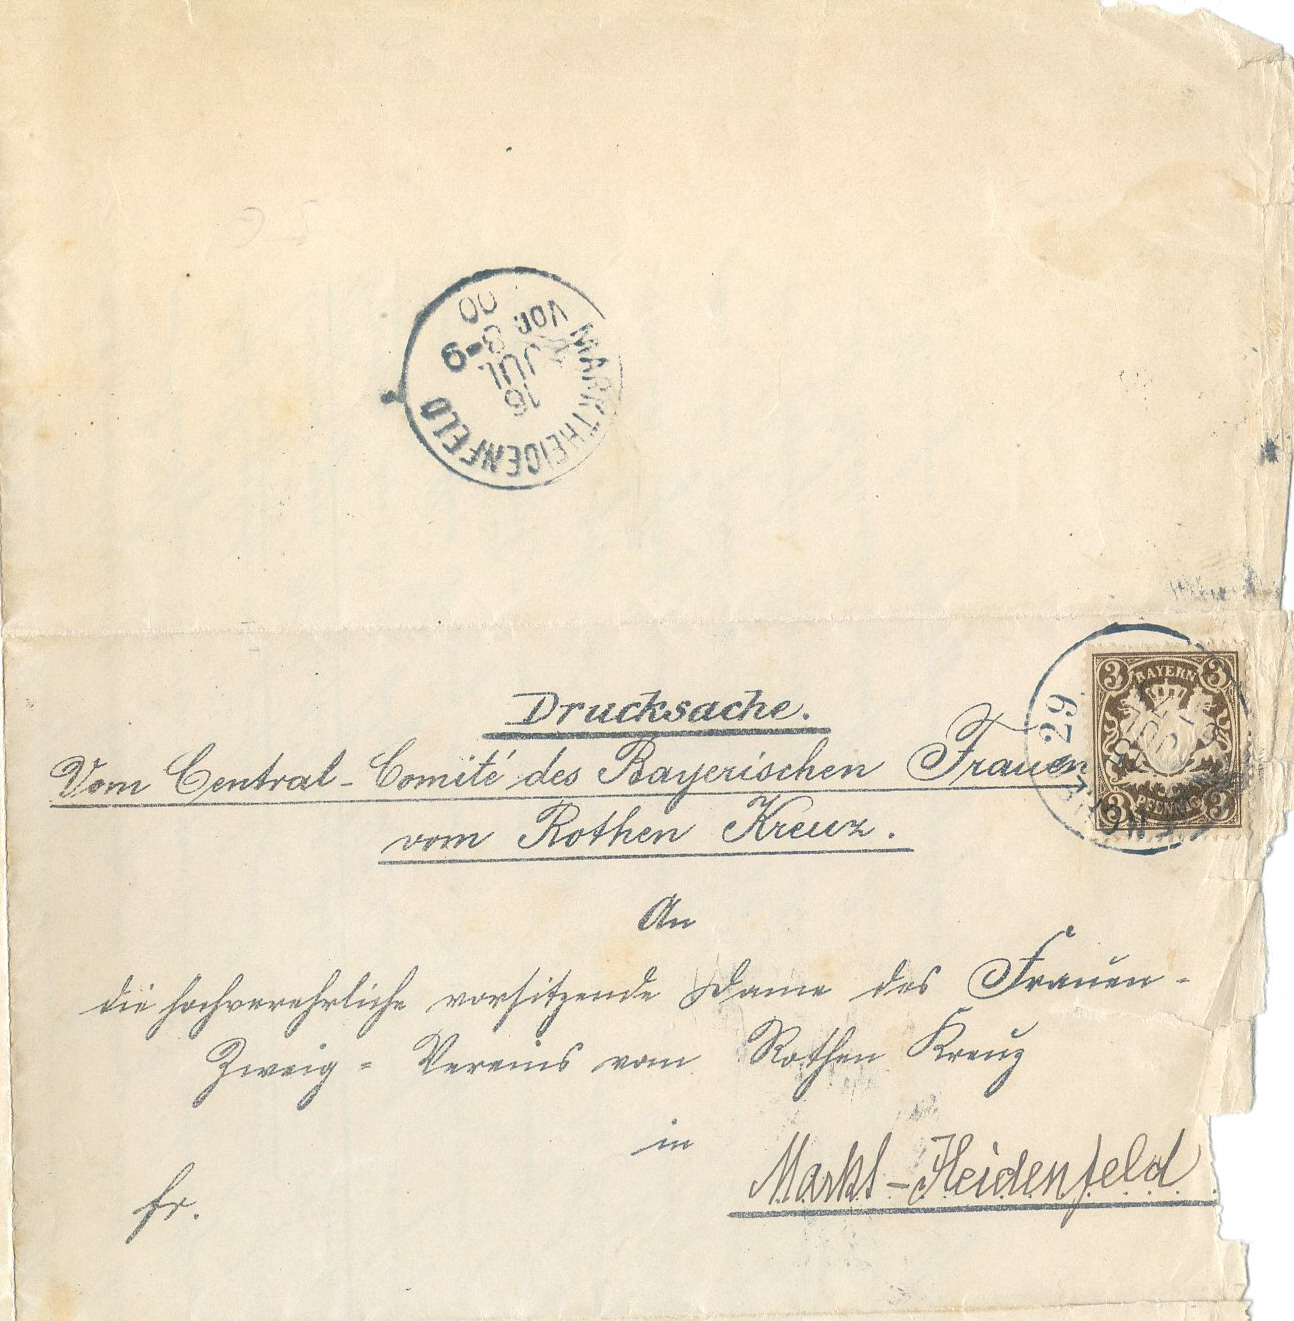 MARKTHEIDENFELD
16
JUL
Vor. 8-9
00
Drucksache.
Vom Central-Comité des Bayerischen Frauen
vom Rothen Kreuz.
3 BAYERN 3
3 PFENNIG 3
29
An
die hochverehrliche vorsitzende Dame des Frauen-
Zweig-Vereins vom Rothen Kreuz
in
Markt-Heidenfeld.
fr.